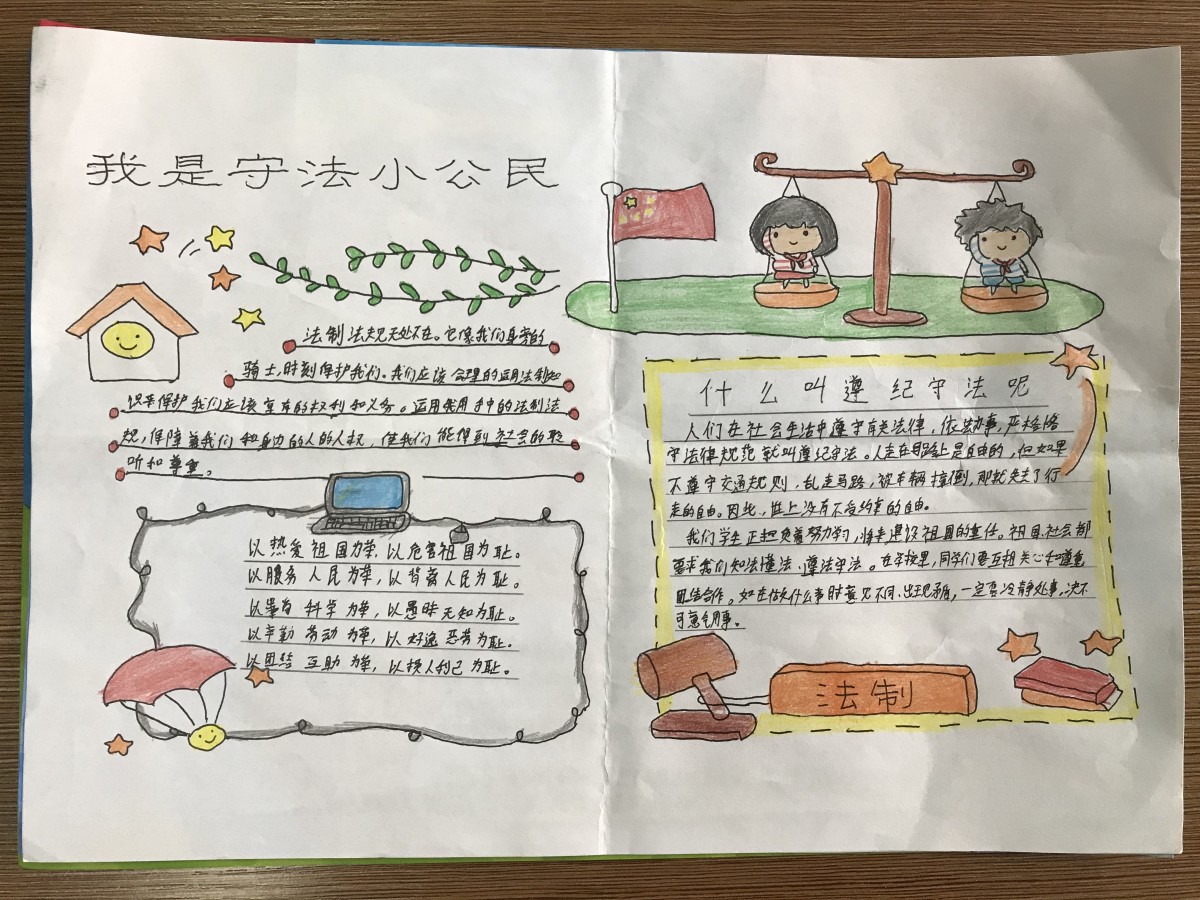 我是守法小公民
法制法规无处不在。它像我们身旁的
骑士,时刻保护我们。我们应该合理的运用法制知
识来保护我们应该享有的权利和义务。运用我用手中的法制法
规,保障着我们和身边的人的人权,使我们能得到社会的聆
听和尊重。
以热爱祖国为荣,以危害祖国为耻。
以服务人民为荣,以背离人民为耻。
以崇尚科学为荣,以愚昧无知为耻。
以辛勤劳动为荣,以好逸恶劳为耻。
以团结互助为荣,以损人利己为耻。
什么叫遵纪守法呢
人们在社会生活中遵守有关法律,依法办事,严格恪
守法律规范就叫遵纪守法。人走在马路上是自由的,但如果
不遵守交通规则,乱走马路,被车辆撞倒,那就失去了行
走的自由。因此,世上没有不受约束的自由。
我们学生正担负着努力学习,将来建设祖国的重任。祖国、社会都
要求我们知法懂法、遵法守法。在学校里,同学们要互相关心和尊重
团结合作。如在做什么事时意见不同、出现矛盾,一定要冷静处事,决不
可意气用事。
法制